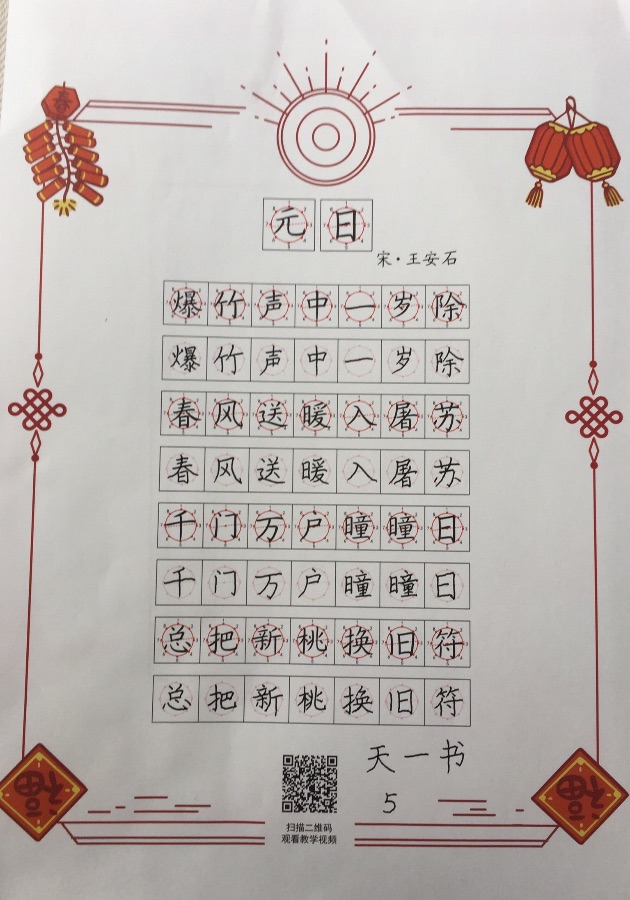 春
元日
宋·王安石
爆竹声中一岁除
爆竹声中一岁除
春风送暖入屠苏
春风送暖入屠苏
千门万户曈曈日
千门万户曈曈日
总把新桃换旧符
总把新桃换旧符
天一书
5
扫描二维码
观看教学视频
福
福